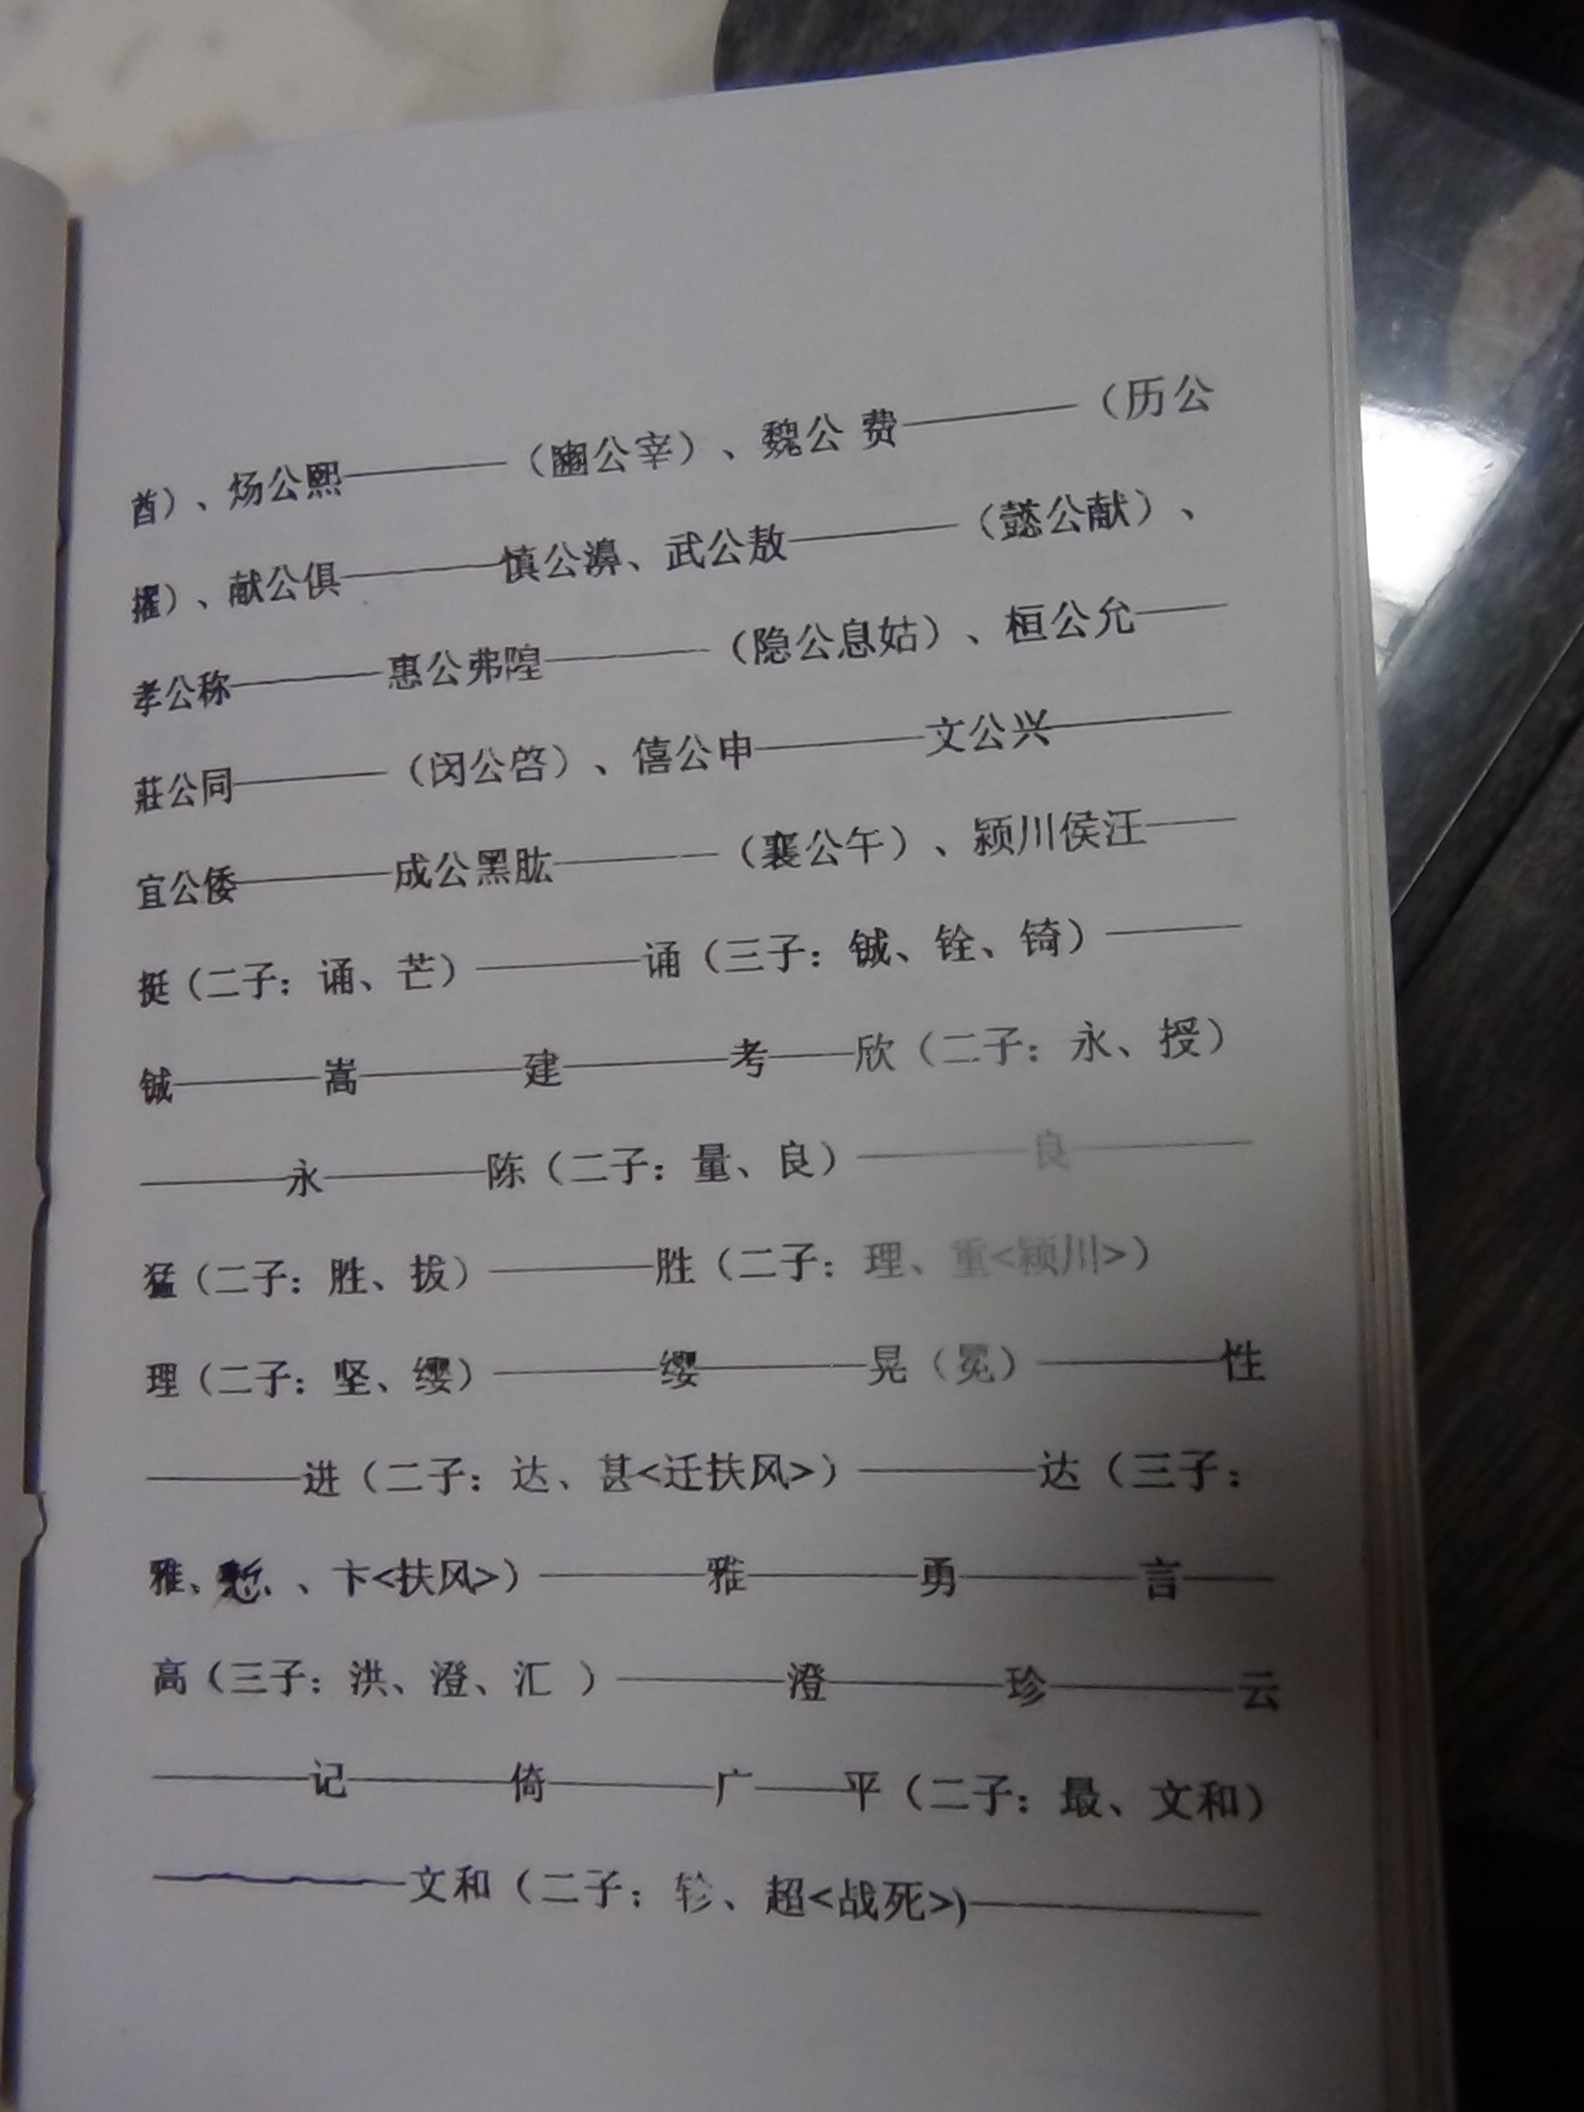 酋）、炀公熙————（豳公宰）、魏公 费————（历公
擢）、献公俱————慎公濞、武公敖————（懿公献）、
孝公称————惠公弗隍————（隐公息姑）、桓公允——
莊公同————（闵公啓）、僖公申————文公兴————
宜公倭————成公黑肱————（襄公午）、颍川侯汪——
挺（二子：诵、芒）————诵（三子：铖、铨、锜）———
铖————嵩————建————考——欣（二子：永、授）
————永————陈（二子：量、良）————良————
猛（二子：胜、拔）————胜（二子：理、重<颍川>）
理（二子：坚、缨）————缨————晃（冕）————性
————进（二子：达、甚<迁扶风>）————达（三子：
雅、、卞<扶风>）————雅————勇————言——
高（三子：洪、澄、汇 ）————澄————珍————云
————记————倚————广——平（二子：最、文和）
——————文和（二子；轸、超<战死>)———————